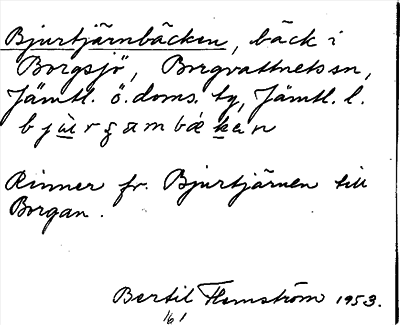 Bjurtjärnbäcken, bäck i
Borgsjö, Borgvattnets sn,
Jämtl. ö. doms. tg, Jämtl. l.
Rinner fr. Bjurtjärnen till
Borgan.
Bertil Flemström 1953.
16/1